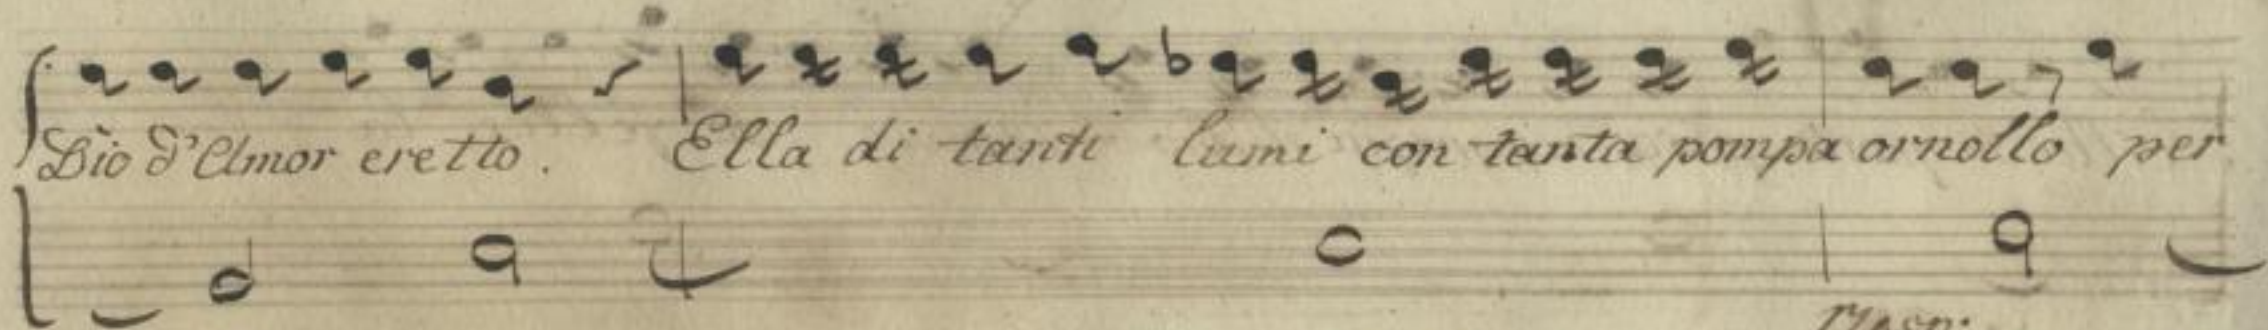 Dio d'Amor eretto. Ella di tanti lumi con tanta pompa ornollo per